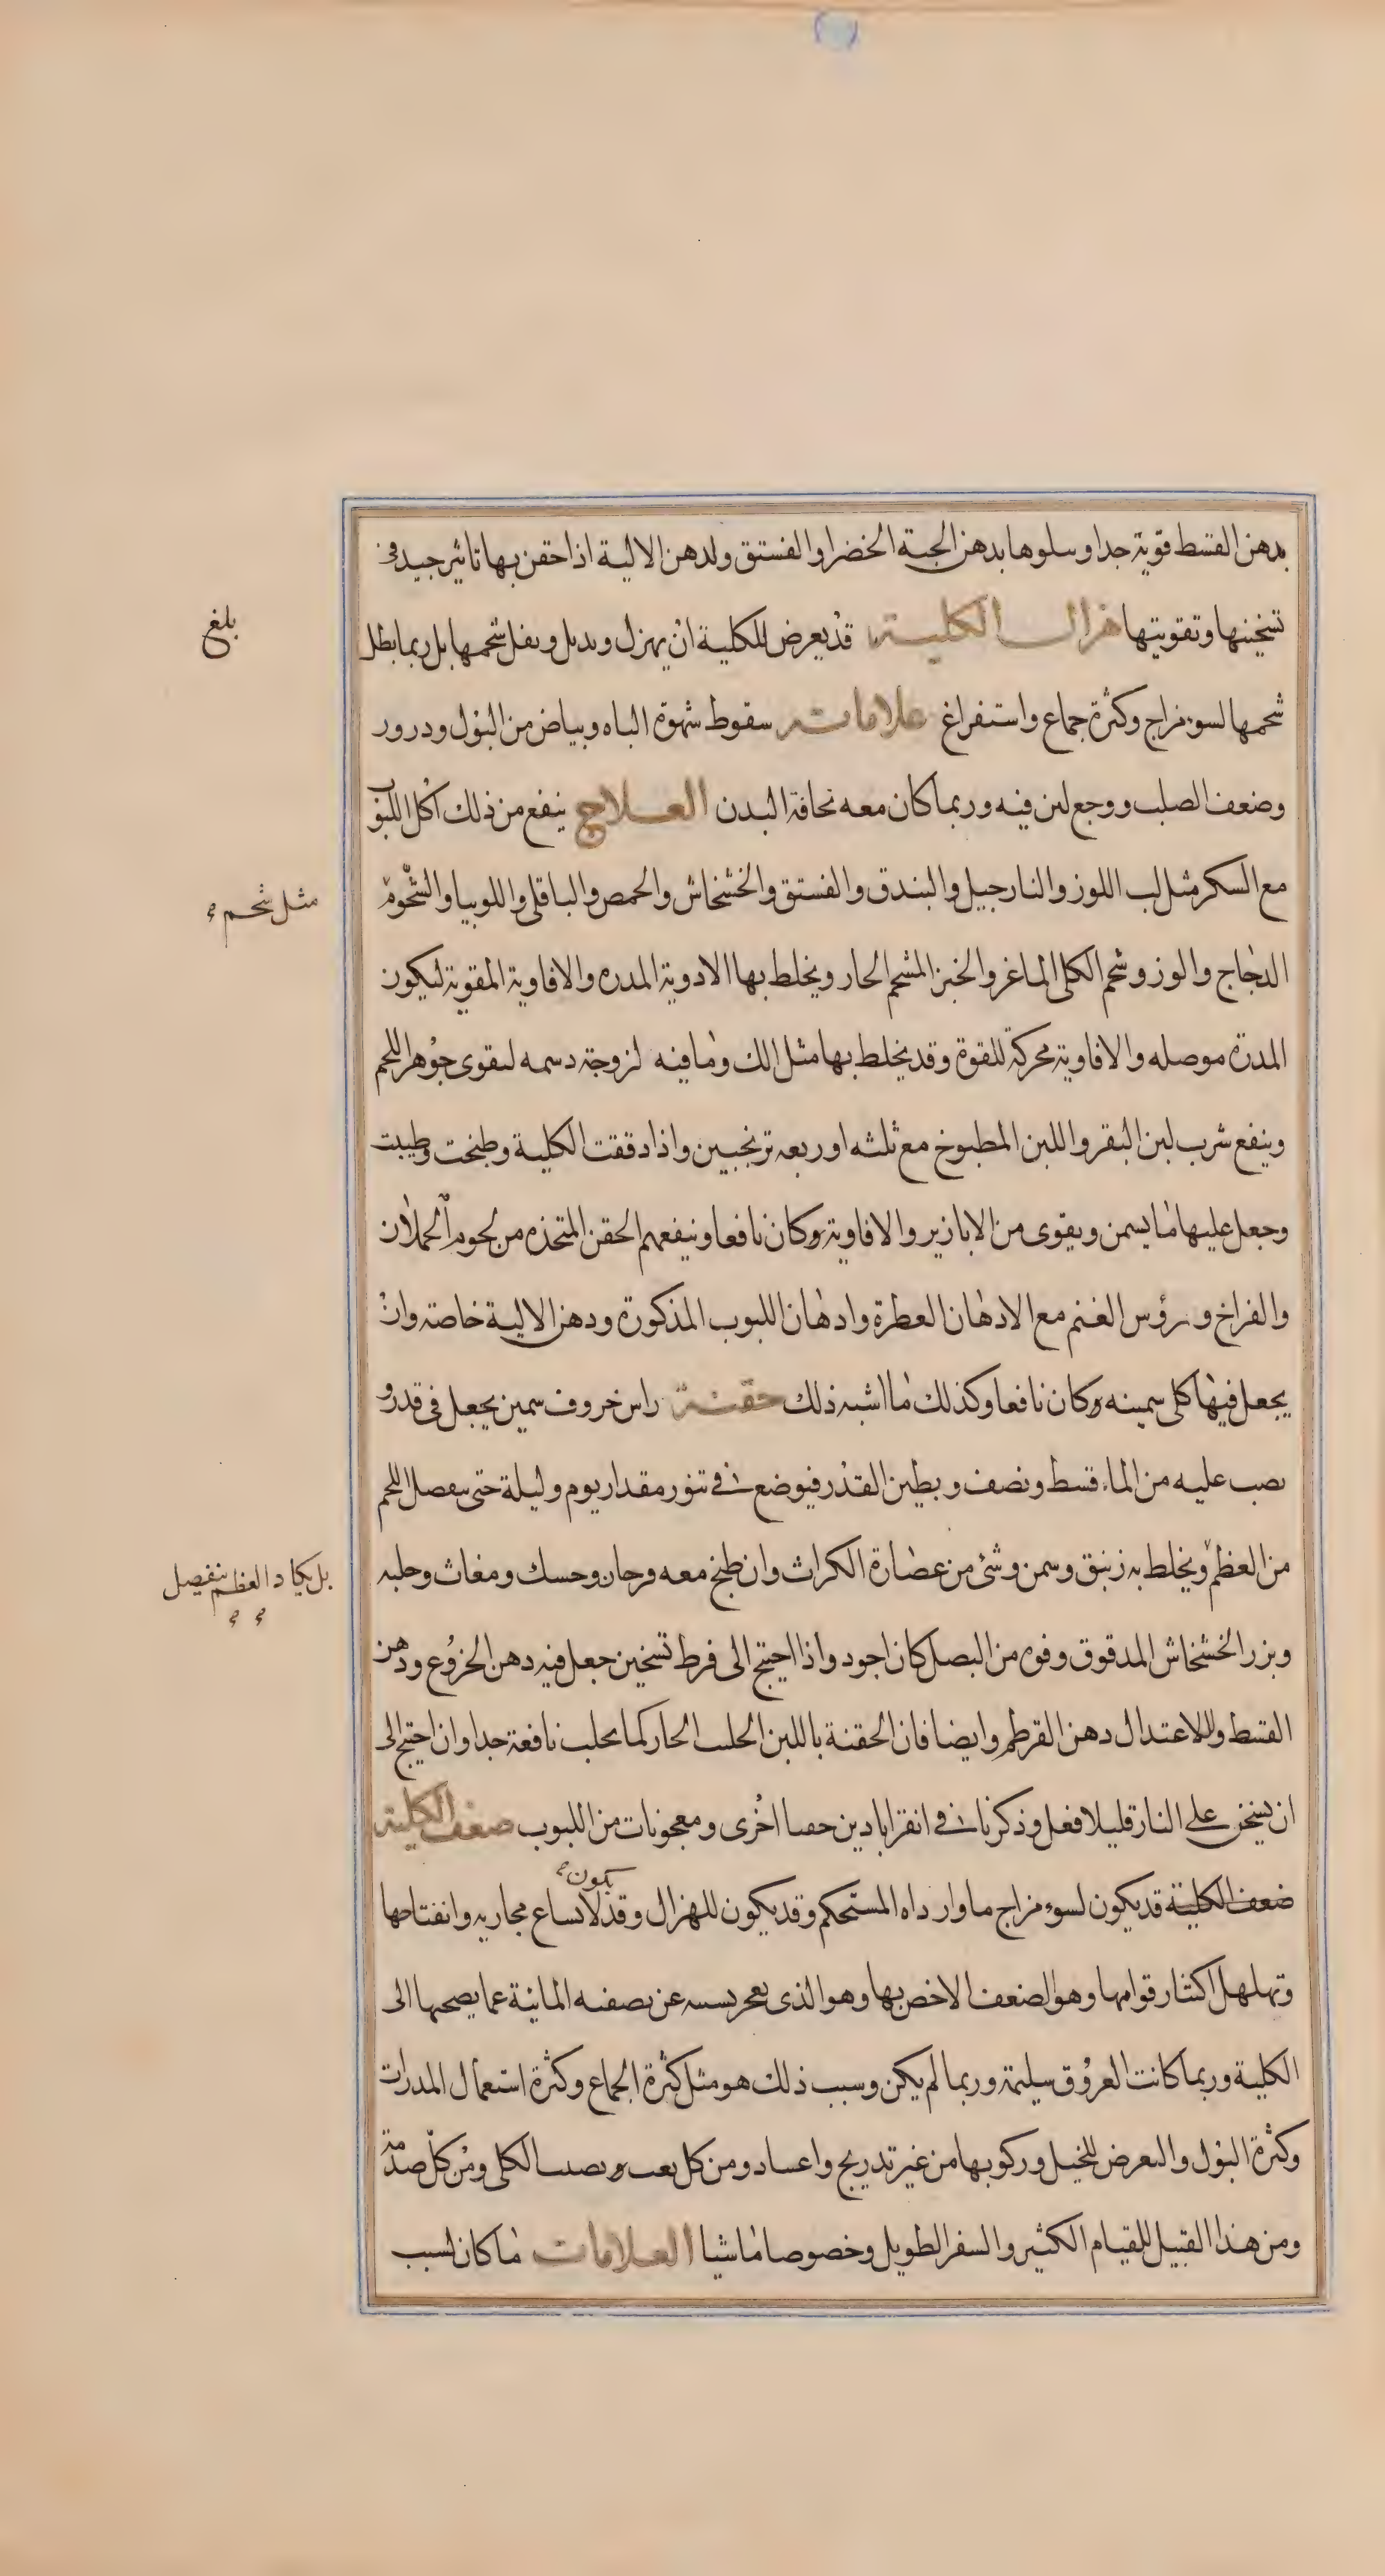 بدهن القسط قوية جدا وسلوها بدهن الحبة الخضرا والفستق ولدهن الالية اذا حقن بها تاثير جيد في
تسخينها وتقويتها هزال الكلية قد يعرض للكلية ان يهزل وىدىل وىقل شحمها بل ربما بطل
شحمها لسوء مزاج وكثرة جماع واستفراغ علامات سقوط شهوة الباه وبياض من البول ودرور
وضعف الصلب ووجع لىن فيه وربما كان معه نحافة البدن العلاج ينفع من ذلك اكل اللبوب
مع السكر مثل لب اللوز والنارجيل والبندق والفستق والخشخاش والحمص والباقلى واللوبيا والشحوم
الدجاج والوز وشحم الكلى الماعز والخبز المشحم الحار ويخلط بها الادوية المدره والافاوية المقوية ليكون
المدرة موصله والافاوية محركة للقوة وقد يخلط بها مثل الك وما فيه لزوجة دسمه لىقوى جوهر اللحم
وينفع شرب لبن البقر واللبن المطبوخ مع ثلثه او ربعه ترنجبين واذا دققت الكلية وطبخت وطيبت
وجعل عليها ما يسمن ويقوى من الابازير والافاوية وكان نافعا وينفعهم الحقن المتخذه من لحوم الحملان
والفراخ ورؤس الغنم مع الادهان العطرة وادهان اللبوب المذكورة ودهن الالية خاصة وان
يجعل فيها كلى سمينه وكان نافعا وكذلك ما اشبه ذلك حقنة راس خروف سمين يجعل في قدر و
ىصب عليه من الماء قسط ونصف ويطين القدر فيوضع في تنور مقدار يوم وليلة حتى ىىفصل اللحم
من العظم ويخلط به زنبق وسمن وشئ من عصارة الكراث وان طبخ معه وحسك ومغاث وحلبه
وبزر الخشخاش المدقوق وفوه من البصل كان اجود واذا احتيج الى فرط تسخين جعل فيه دهن الخروع ودهن
القسط وللاعتدال دهن القرطم وايضا فان الحقنة باللبن الحلىب الحار كما ىحلب نافعة جدا وان احتيج الى
ان يسخن على النار قليلا فعل وذكرنا في انقراباد ين حقىا اخرى ومعجونات من اللبوب ضعف الكلية
ضعف الكلية قد يكون لسوء مزاج ما وار داه المستحكم وقد يكون للهزال وقد يكون لاىساع مجاريه وانفتاحها
وتهلهل اكتىار قوامها وهو الضعف الاخص بها وهو الذى ىعجر ىسىىه عن ىصفىه المائية عما يصحبها الى
الكلية وربما كانت العروق سليمة وربما لم يكن وسبب ذلك هو مثل كثرة الجماع وكثرة استعمال المدرات
وكثرة البول والىعرض للخيل وركوبها من غير تدريج واعىىاد ومن كل ىعب وىصىب الكلى ومن كل صدمة
ومن هذا القبيل للقيام الكثير والسفر الطويل وخصوصا ماشيا العلامات ما كان لسبب
بلغ
مثل شحم
بل يكاد العظم ينفصل